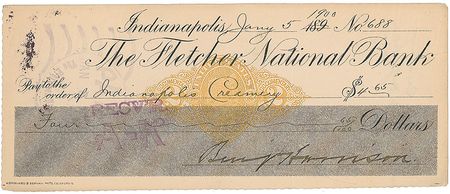 1900
Indianapolis, Jany 5 189 No. 688
The Fletcher National Bank
Pay to the
order of Indianapolis Creamery $4.65
Four 65/100 Dollars
Benj Harrison